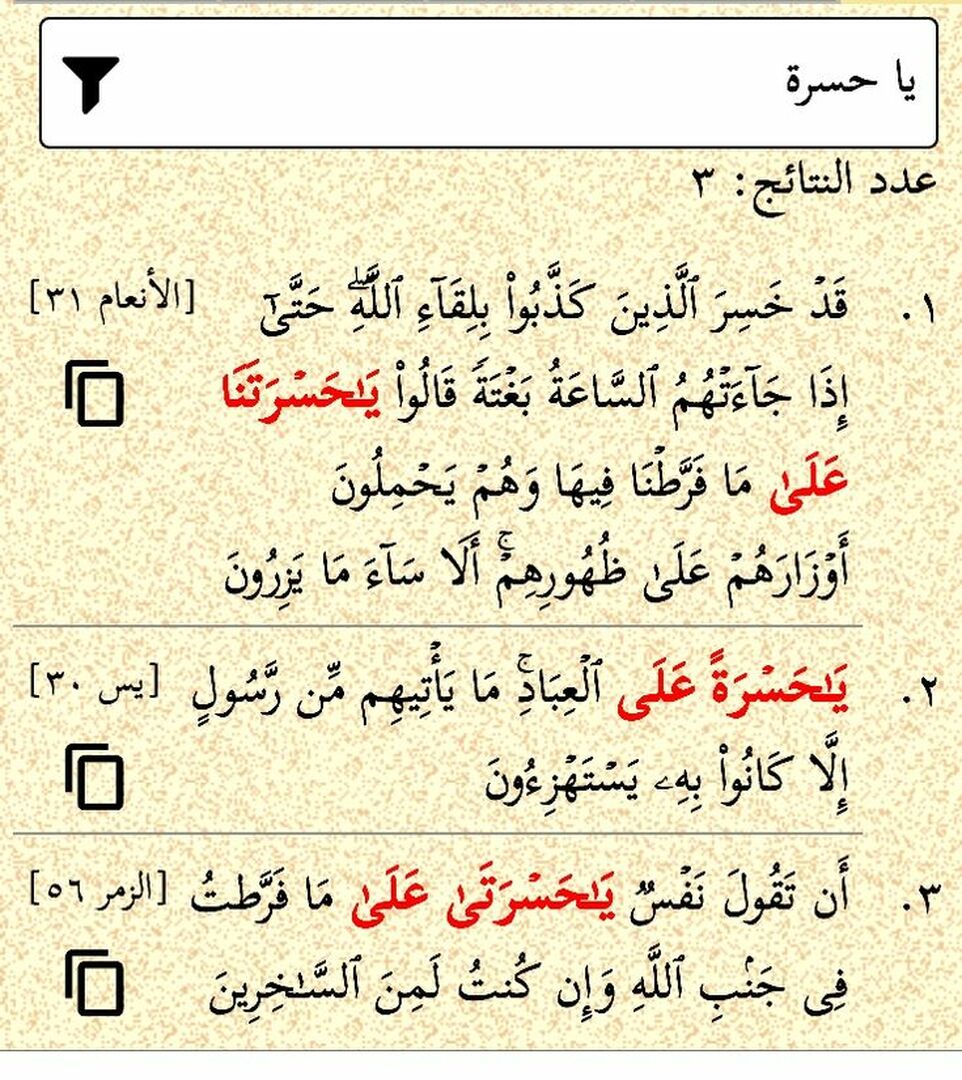 يا حسرة
عدد النتائج: ٣
١. قَدۡ خَسِرَ ٱلَّذِينَ كَذَّبُواْ بِلِقَآءِ ٱللَّهِۖ حَتَّىٰٓ [الأنعام ٣١]
إِذَا جَآءَتۡهُمُ ٱلسَّاعَةُ بَغۡتَةٗ قَالُواْ يَٰحَسۡرَتَنَا
عَلَىٰ مَا فَرَّطۡنَا فِيهَا وَهُمۡ يَحۡمِلُونَ
أَوۡزَارَهُمۡ عَلَىٰ ظُهُورِهِمۡۚ أَلَا سَآءَ مَا يَزِرُونَ
٢. يَٰحَسۡرَةً عَلَى ٱلۡعِبَادِۚ مَا يَأۡتِيهِم مِّن رَّسُولٍ [يس ٣٠]
إِلَّا كَانُواْ بِهِۦ يَسۡتَهۡزِءُونَ
٣. أَن تَقُولَ نَفۡسٞ يَٰحَسۡرَتَىٰ عَلَىٰ مَا فَرَّطتُ [الزمر ٥٦]
فِى جَنۢبِ ٱللَّهِ وَإِن كُنتُ لَمِنَ ٱلسَّٰخِرِينَ